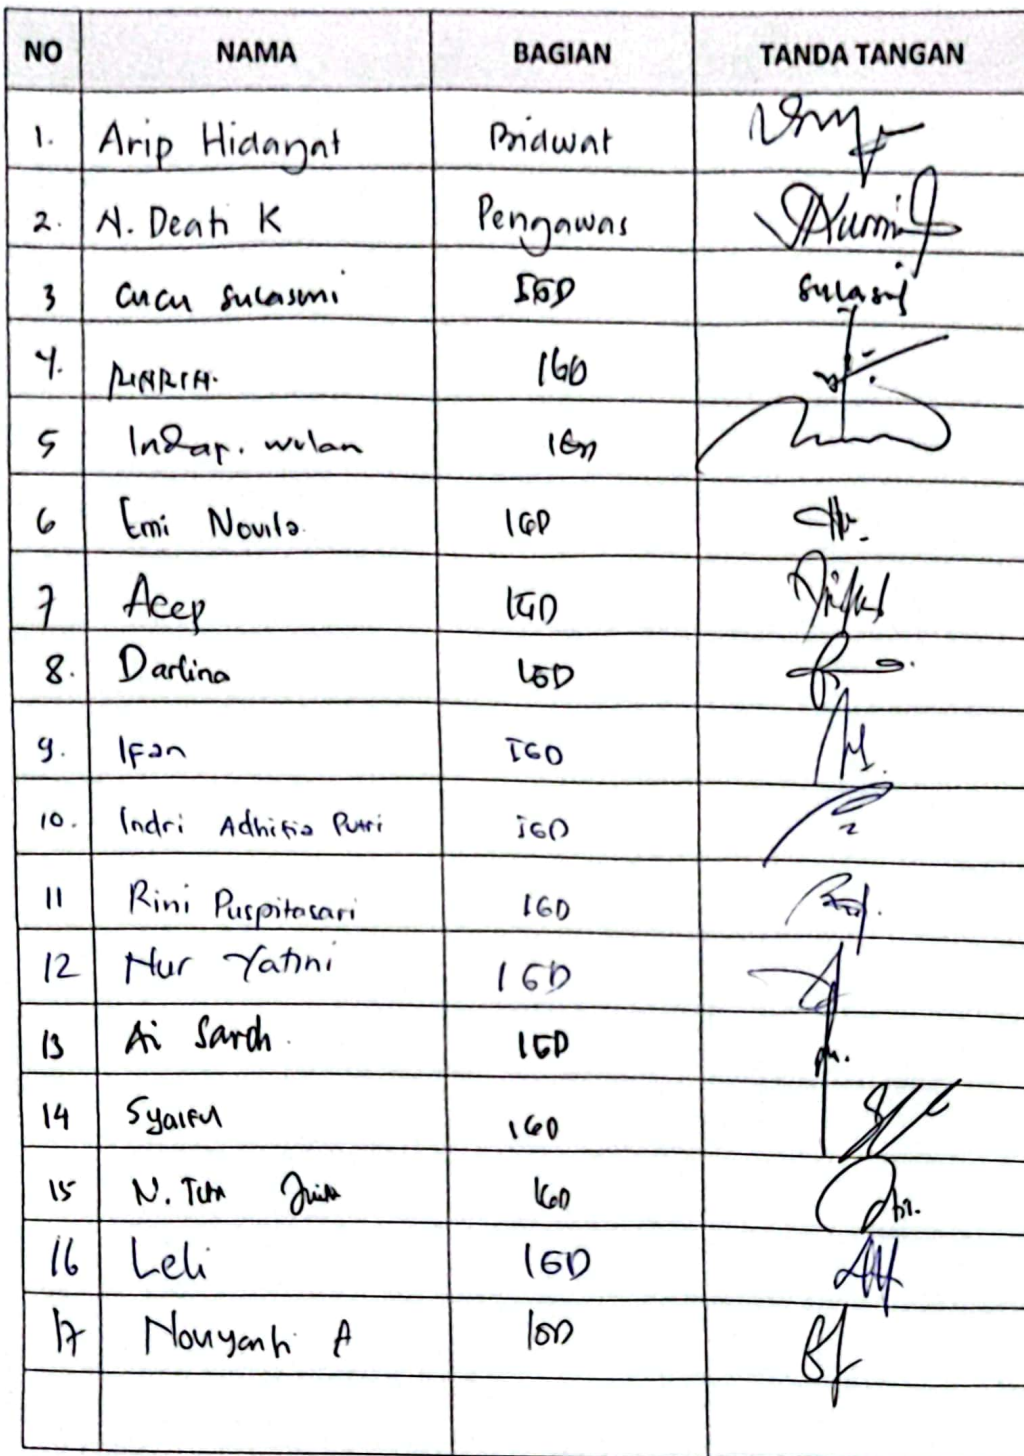 NO NAMA BAGIAN TANDA TANGAN
1. Arip Hidayat Bidwat
2. N. Deati K Pengawas
3 Cucu Sulasmi IGD Sulasmi
4. MARIA. IGD
5 Indap. wulan IGD
6 Emi Novita IGD
7 Acep IGD
8. Darlina IGD
9. Ifan IGD
10. Indri Adhitia Putri IGD
11 Rini Puspitasari IGD
12 Nur Yatini IGD
13 Ai Sarah IGD
14 Syaiful IGD
15 N. IGD
16 Leli IGD
17 Novyanti A IGD